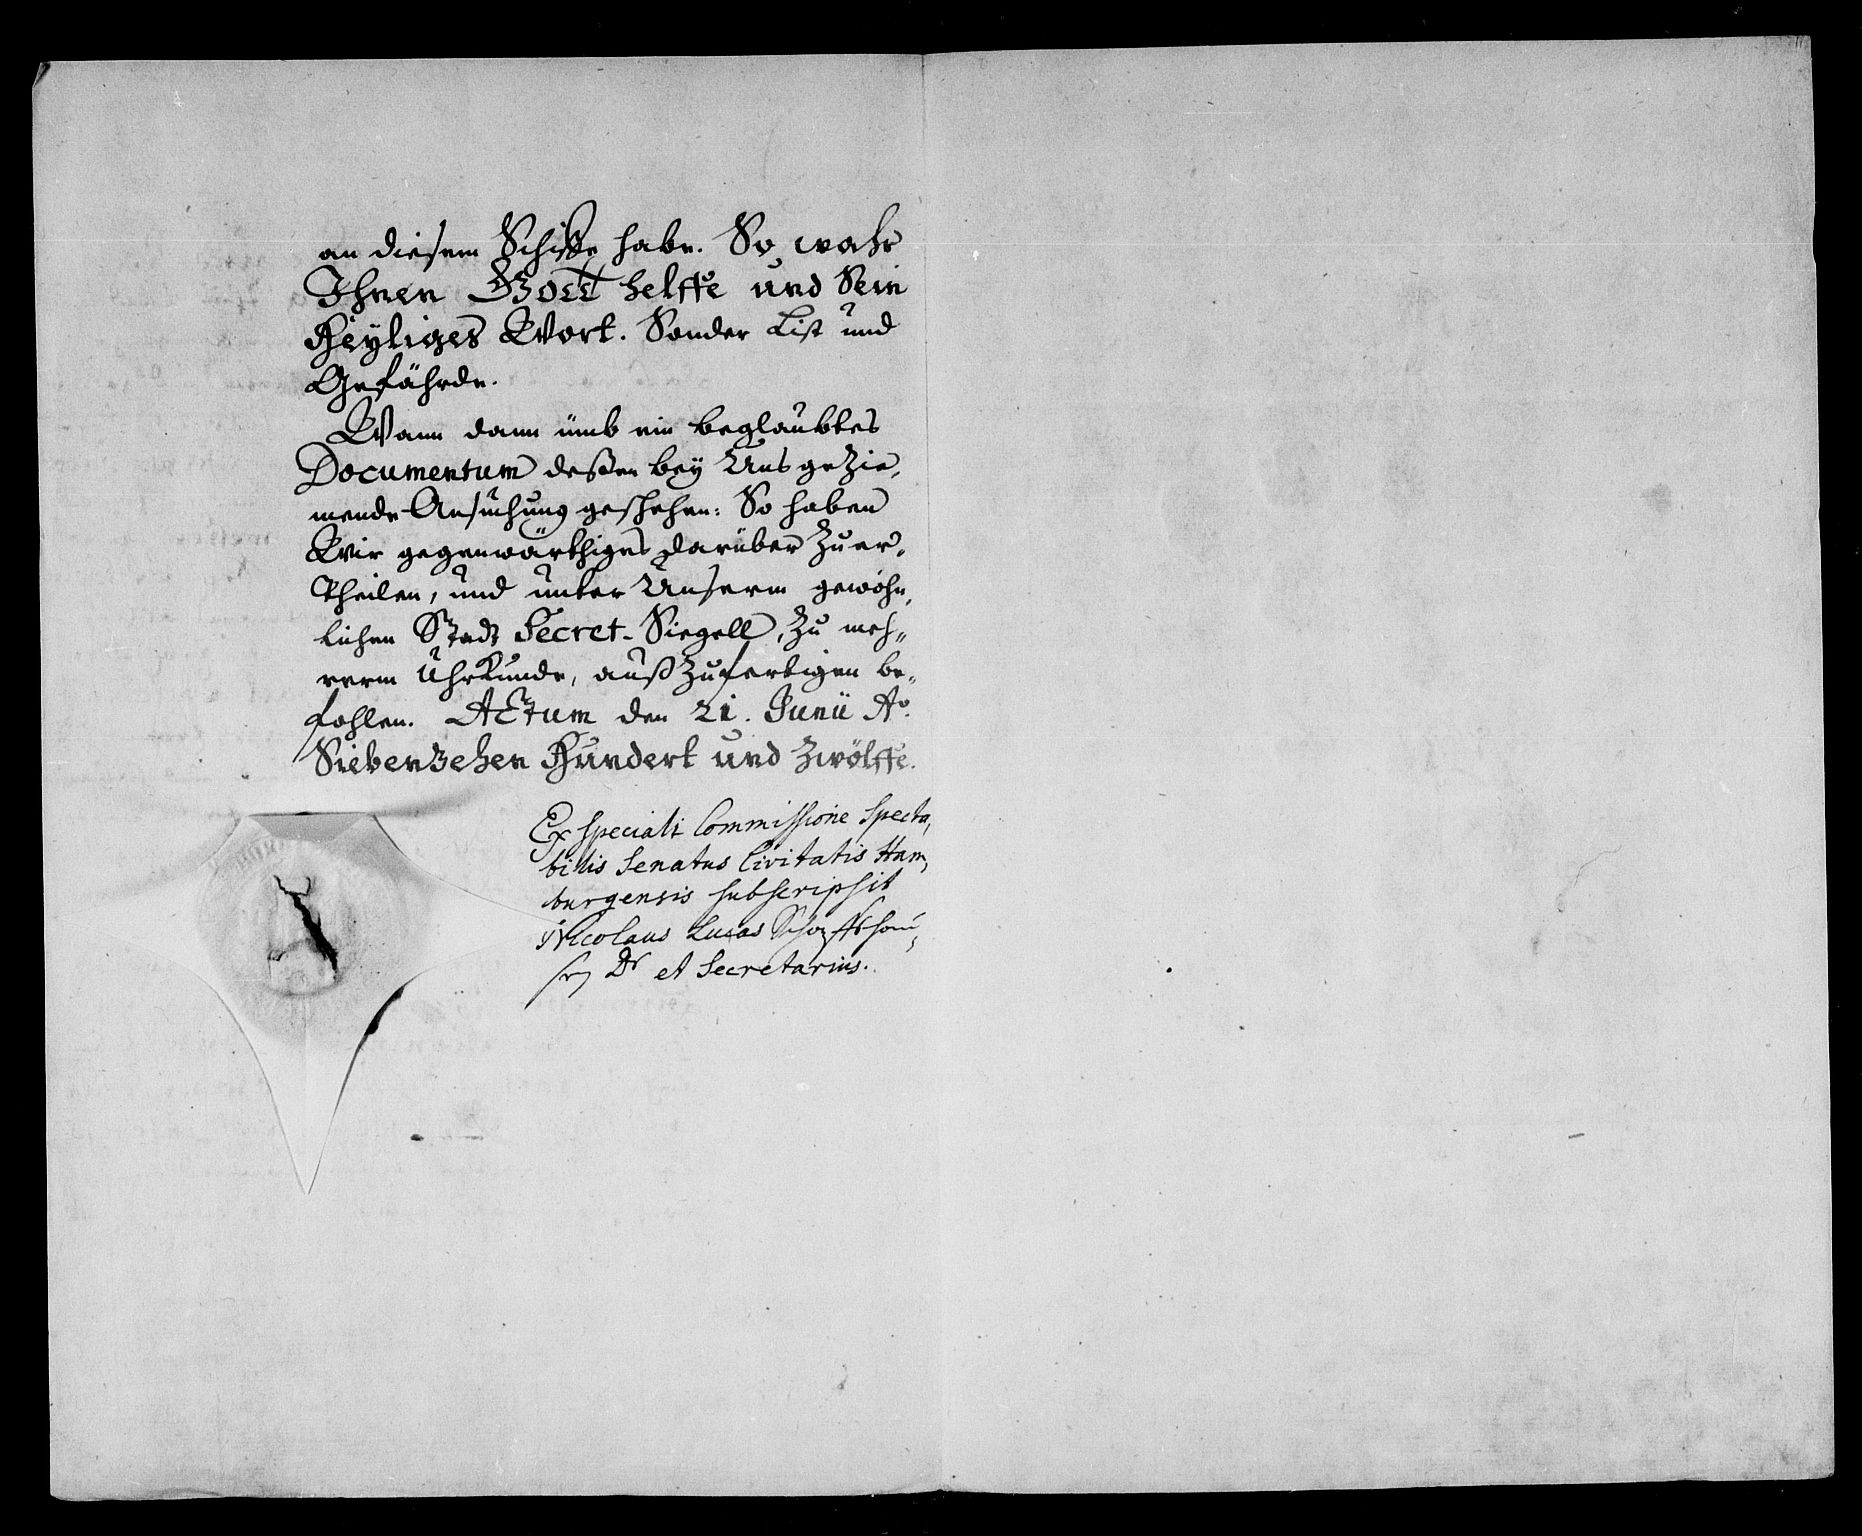 an diesem Schiffe habe. So wahr
Ihnen Gott helffe und Sein
Heyliges Wort. Sonder List und
Gefährde.
Wann dann ümb ein beglaubtes
Documentum deßen bey Uns gezie,
mende Ansuchung geschehen: So haben
Wir gegenwärthiges darüber zu er,
theilen, und unter Unserm gewöhn,
lichen Stadt Secret-Siegell, zu meh,,
rerm Uhrkunde, außzufertigen be,
fohlen. Actum den 21. Junii Ao.
Siebenzehen Hundert und Zwölffe.
Ex speciali Commissione Specta,
bilis Senatus Civitatis Ham,
burgensis subscripsit
Nicolaus Lucas Schaffshau,
sen Dr et Secretarius.